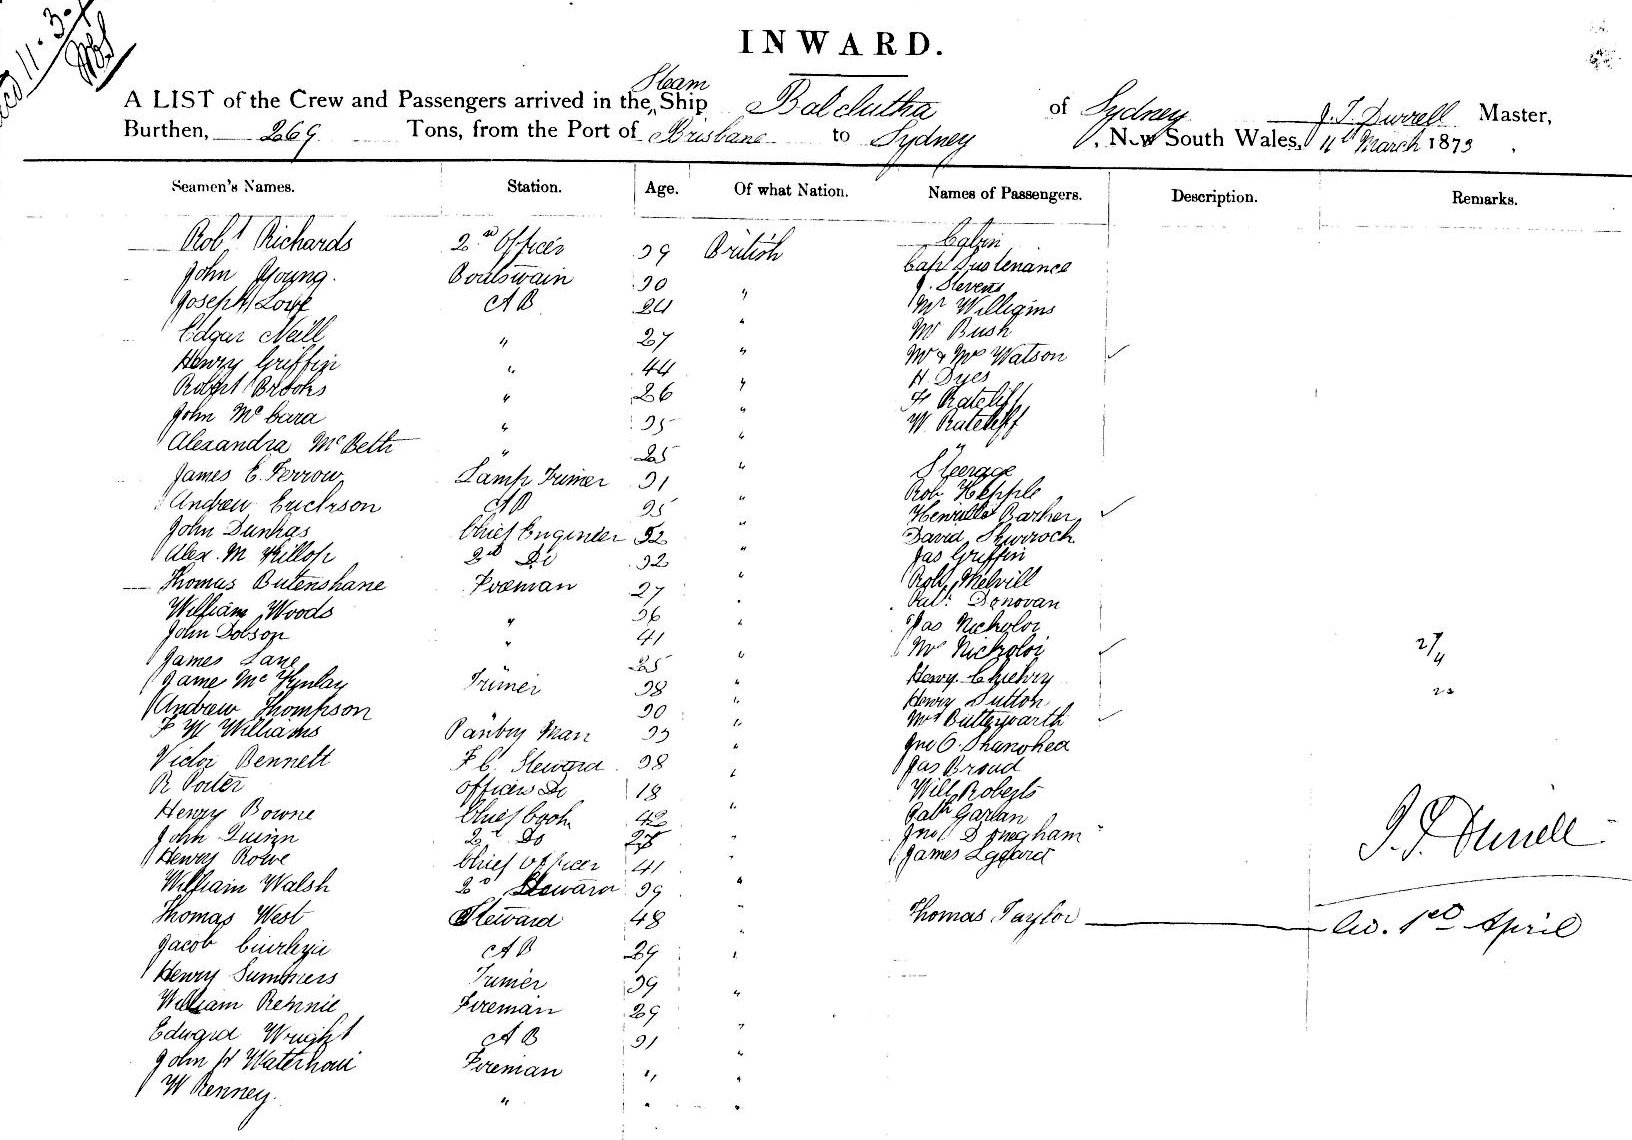 11.3.
INWARD.
Steam
A LIST of the Crew and Passengers arrived in the Ship Balclutha of Sydney J. T. Durrell Master,
Burthen, 269 Tons, from the Port of Brisbane to Sydney, New South Wales, 11th March 1873.
Seamen's Names. Station. Age. Of what Nation. Names of Passengers. Description. Remarks.
Robt Richards 2nd Officer 39 British Cabin
John Young. Boatswain 30 " Capt Sustenance
Joseph Lowe AB 24 " J. Stevens
Mr Williams
Edgar Neill " 27 " Mr Bush
Henry Griffin " 44 " Mr & Mrs Watson
Robert Brooks " 26 " H Dyes
F Ratcliff
John McCara " 35 " W Ratcliff
Alexandra McBeth " 25 " "
James E. Ferrow Lamp Trimer 31 " Steerage
Andrew Erickson AB 35 " Rob Hepple
Barker
John Dunkas Chief Engineer 52 " David
Alex. M Killop 2nd Do 32 " Jas Griffin
Thomas Butenshane Fireman 27 " Robt Melvill
William Woods " 36 " Donovan
John Dobson " 41 " Jas Nicholoi
James Lane " 25 " Mrs Nicholoi 2/4
Jame McKynlay Trimer 38 " Henry
Andrew Thompson " 30 " Henry Sutton "
F W Williams Pantry Man 33 " Mrs Butterwarth
Jno O. Shanohea
Victor Bennett F.C. Steward 38 " Jas Broud
R Porter Officers Do 18 " Will Roberts
Henry Bowne Chief Cook 42 " Cath Garlan
John Quinn 2nd Do 25 " Jno Donegham
Henry Rowe Chief Officer 41 " James
J. T. Durrell
William Walsh 2nd Steward 39 "
Thomas West Steward 48 " Thomas Taylor 1st April
Jacob AB 29 "
Henry Summers Trimer 39 "
William Rennie Fireman 29 "
Edward Wright AB 31 "
John H Waterhoui Fireman " "
W Renney. " " "